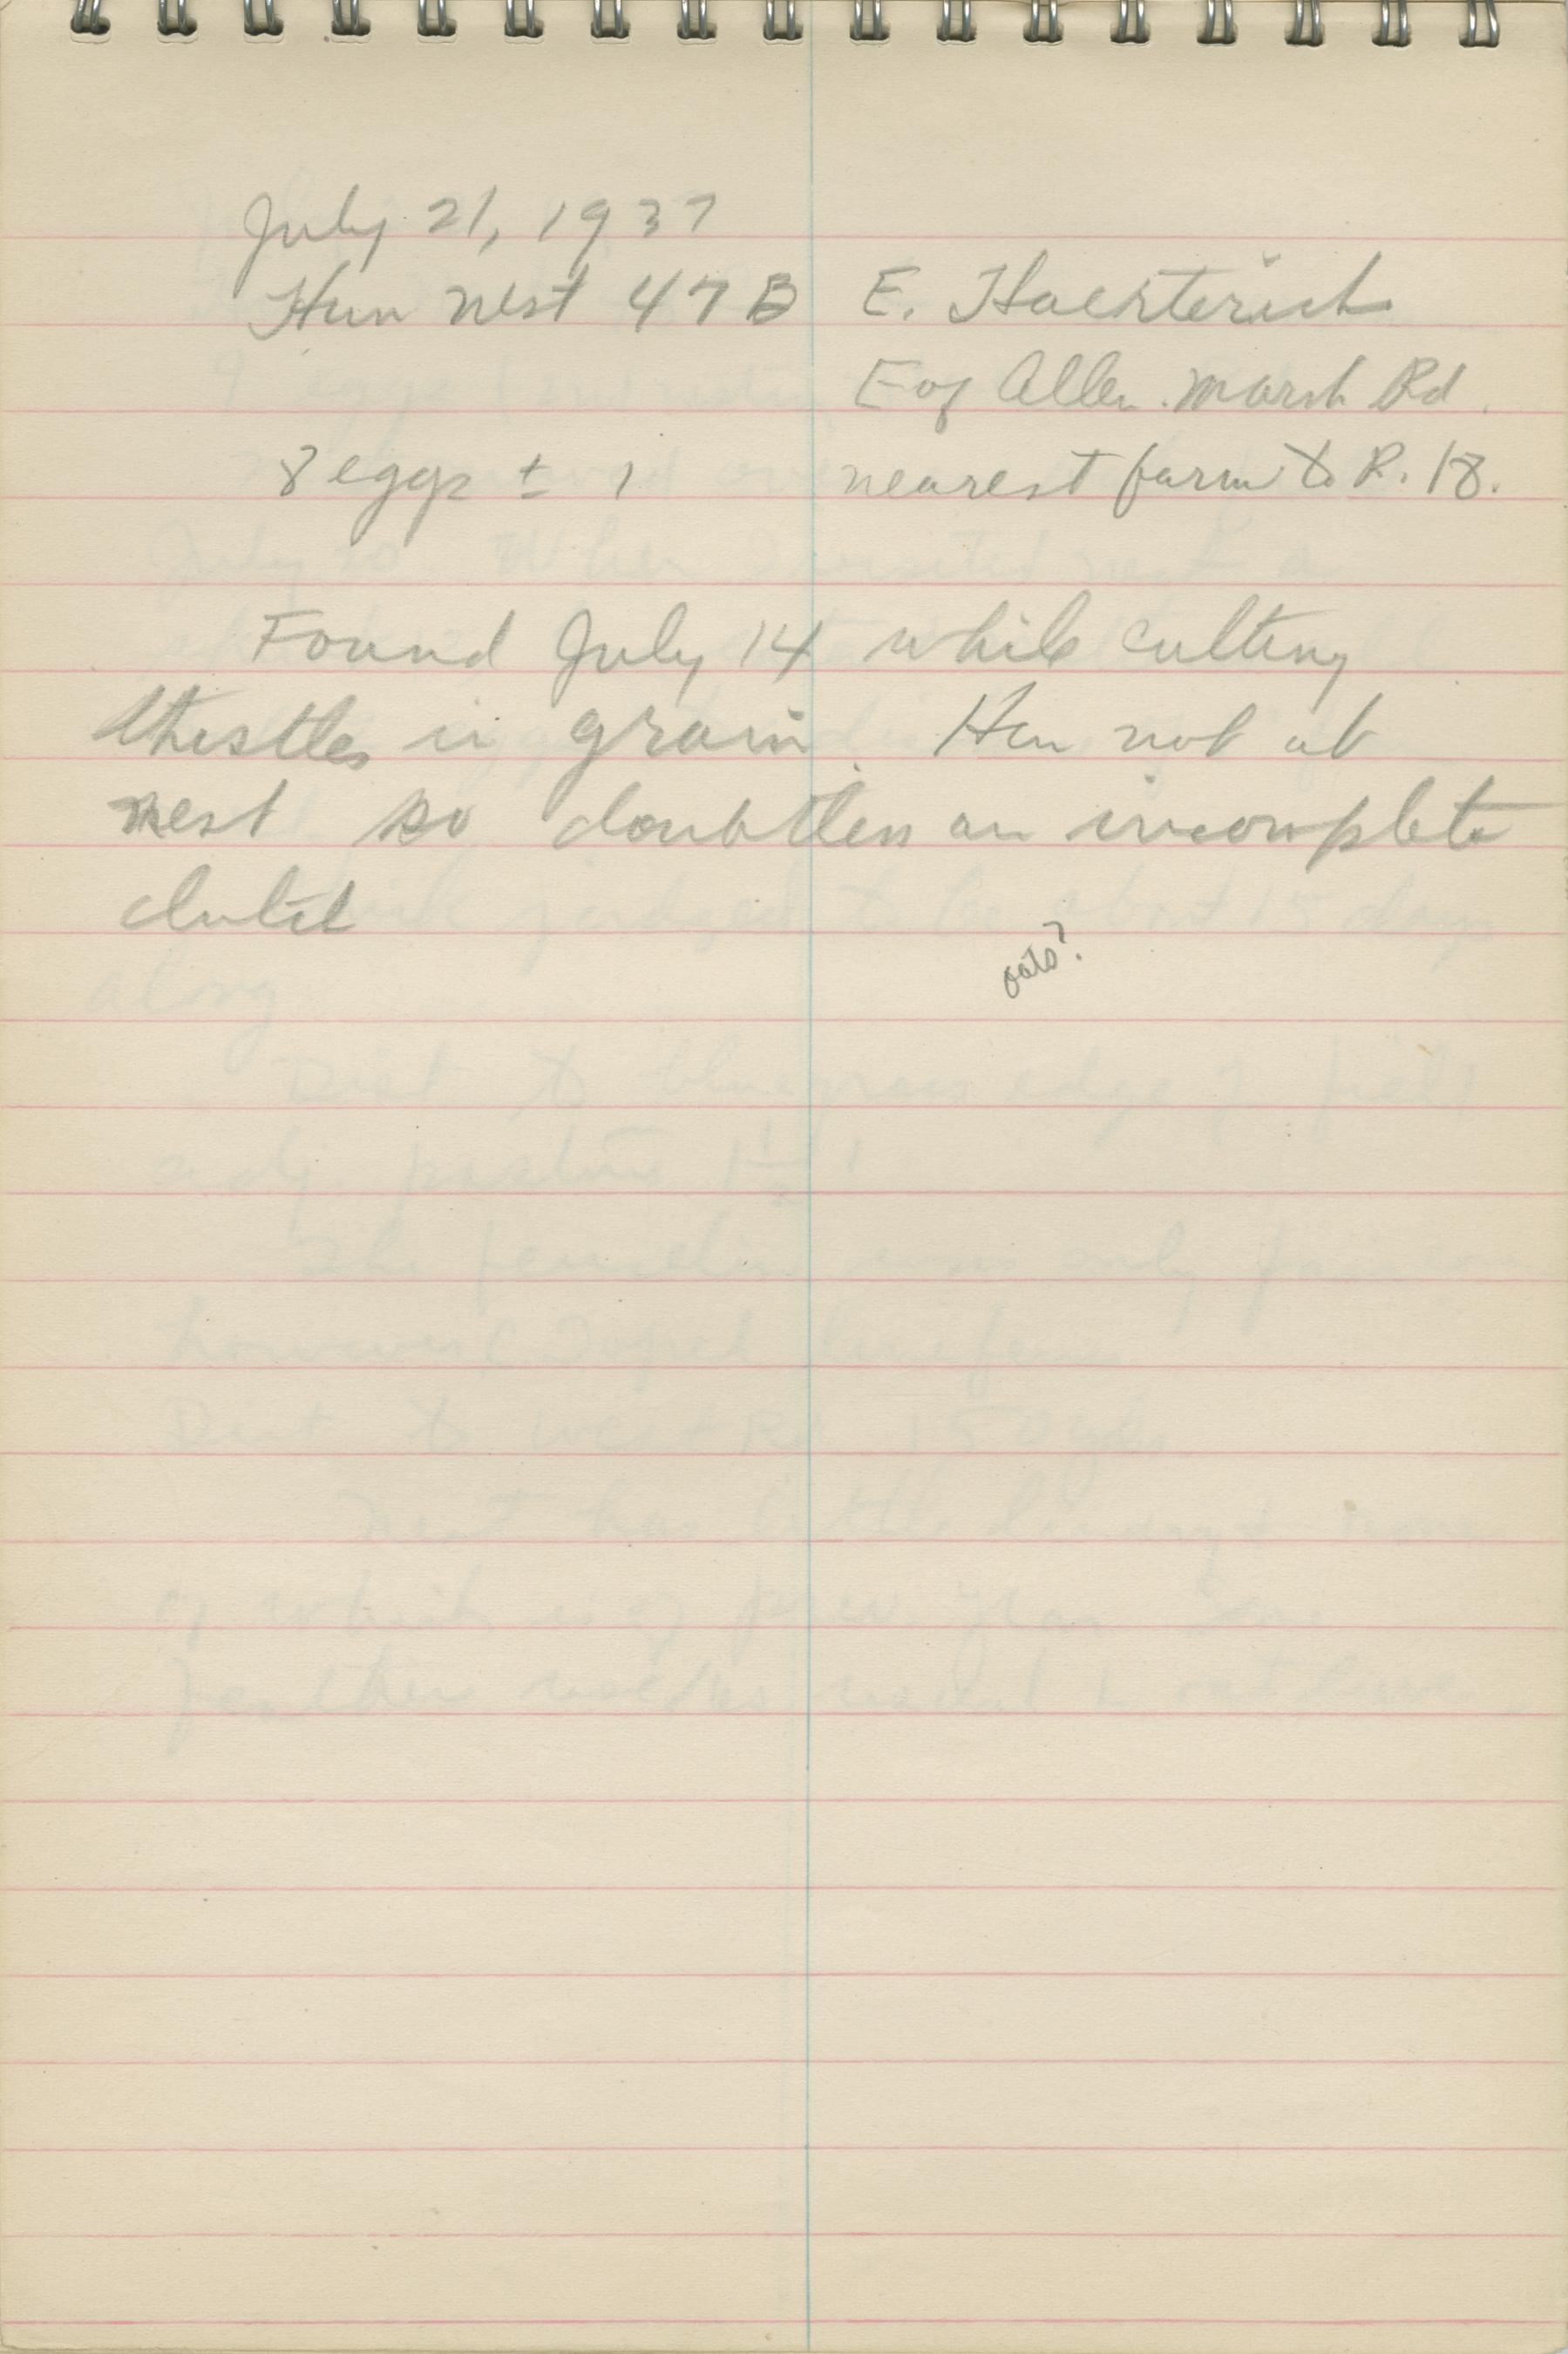 July 21, 1937
Hun nest 47B E. Haerterich
E of Allen. Marsh Rd.
8 eggs ± 1 nearest farm to R. 18.
Found July 14 while cutting
thistles in grain. Hen not at
nest so doubtless an incomplete
clutch
oats?